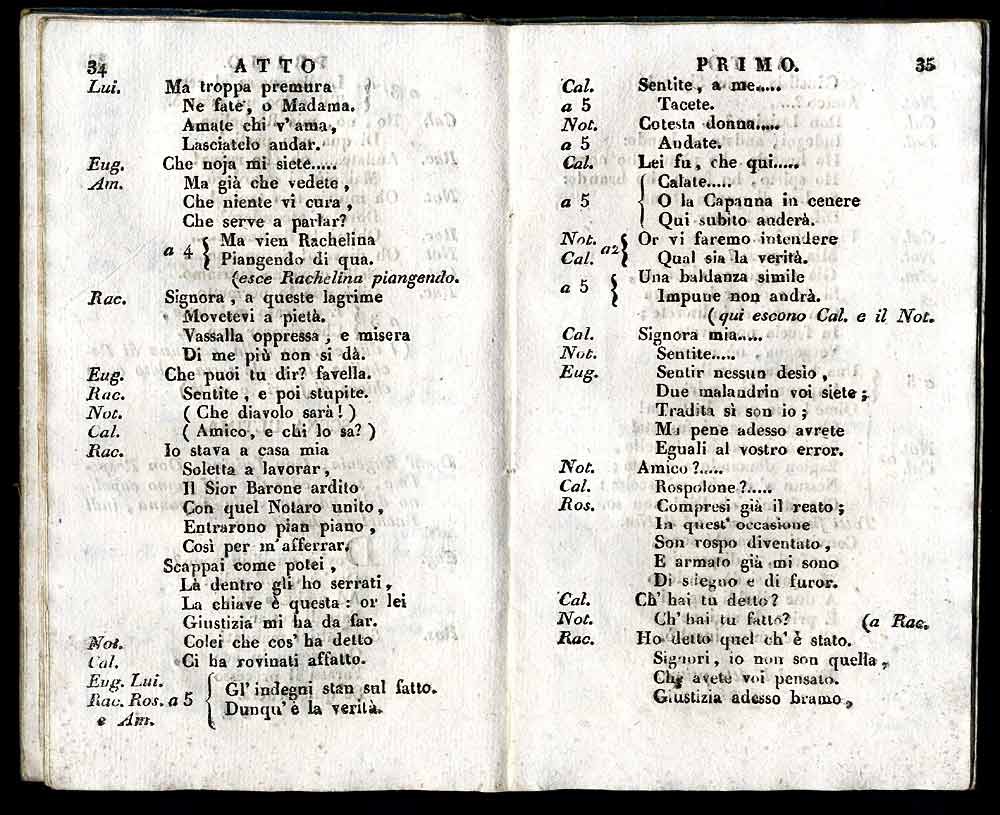 34 ATTO
Lui. Ma troppa premura
Ne fate, o Madama.
Amate chi v' ama,
Lasciatelo andar.
Eug. Che noja mi siete.....
Am. Ma già che vedete,
Che niente vi cura,
Che serve a parlar?
a 4 { Ma vien Rachelina
Piangendo di qua.
(esce Rachelina piangendo.
Rac. Signora, a queste lagrime
Movetevi a pietà.
Vassalla oppressa, e misera
Di me più non si dà.
Eug. Che puoi tu dir? favella.
Rac. Sentite, e poi stupite.
Not. ( Che diavolo sarà! )
Cal. ( Amico, e chi lo sa? )
Rac. Io stava a casa mia
Soletta a lavorar,
Il Sior Barone ardito
Con quel Notaro unito,
Entrarono pian piano,
Così per m' afferrar.
Scappai come potei,
Là dentro gli ho serrati,
La chiave è questa: or lei
Giustizia mi ha da far.
Not. Colei che cos' ha detto
Cal. Ci ha rovinati affatto.
Eug. Lui.
Rac. Ros. a 5 { Gl' indegni stan sul fatto.
e Am. Dunqu' è la verità.
PRIMO. 35
Cal. Sentite, a me.....
a 5 Tacete.
Not. Cotesta donna.....
a 5 Andate.
Cal. Lei fu, che qui.....
a 5 { Calate.....
O la Capanna in cenere
Qui subito anderà.
Not. a2 { Or vi faremo intendere
Cal. Qual sia la verità.
a 5 { Una baldanza simile
Impune non andrà.
(qui escono Cal. e il Not.
Cal. Signora mia.....
Not. Sentite.....
Eug. Sentir nessun desio,
Due malandrin voi siete;
Tradita sì son io;
Ma pene adesso avrete
Eguali al vostro error.
Not. Amico?.....
Cal. Rospolone?.....
Ros. Compresi già il reato;
In quest' occasione
Son rospo diventato,
E armato già mi sono
Di sdegno e di furor.
Cal. Ch' hai tu detto?
Not. Ch' hai tu fatto? (a Rac.
Rac. Ho detto quel ch' è stato.
Signori, io non son quella,
Che avete voi pensato.
Giustizia adesso bramo,